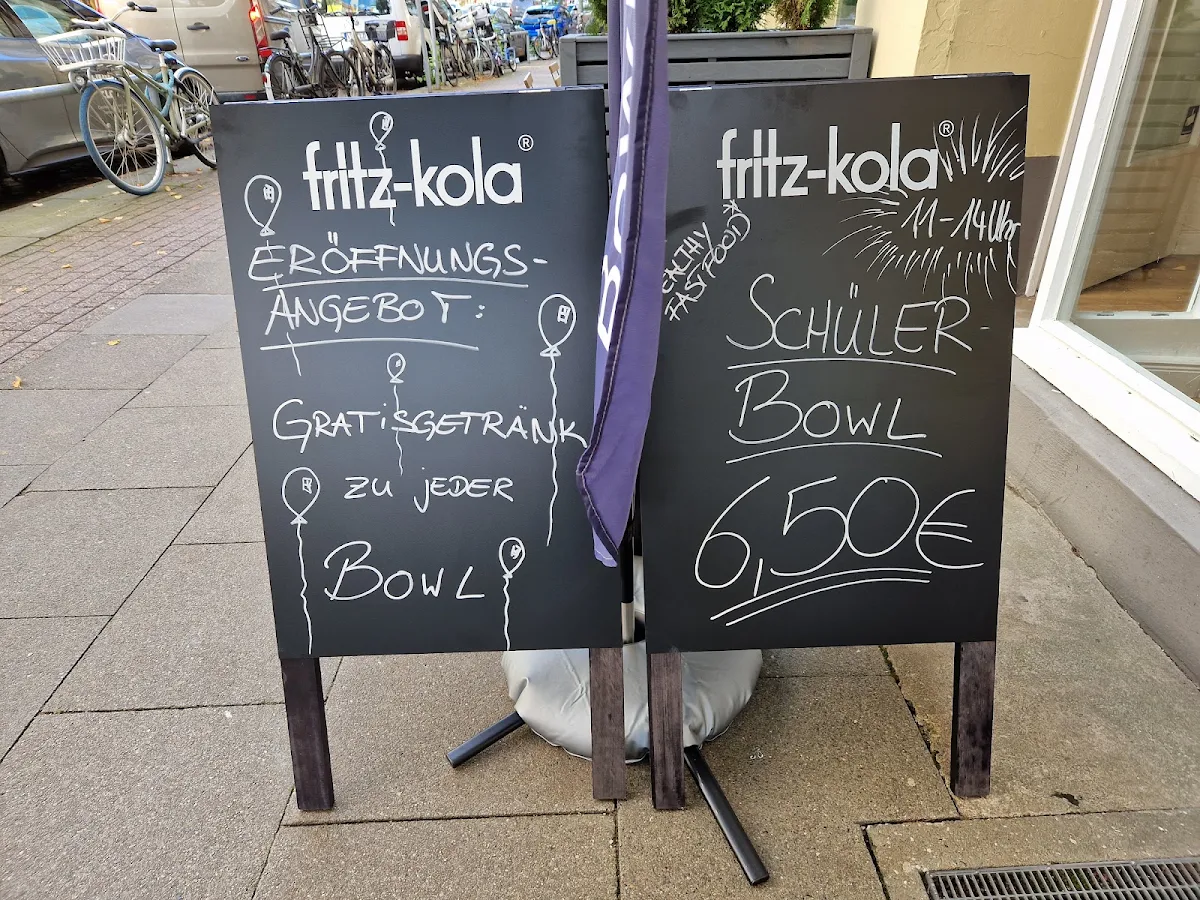 fritz-kola®
ERÖFFNUNGS-
ANGEBOT:
GRATISGETRÄNK
ZU JEDER
BOWL
fritz-kola®
11-14 Uhr
FASTFOOD)
SCHÜLER-
BOWL
6,50€